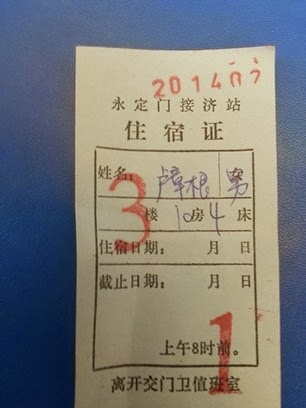 201407
永定门接济站
住宿证
姓名: 卢章根 男
3 楼 10 房 4 床
住宿日期: 月 日
截止日期: 月 日
上午8时前。
1
离开交门卫值班室